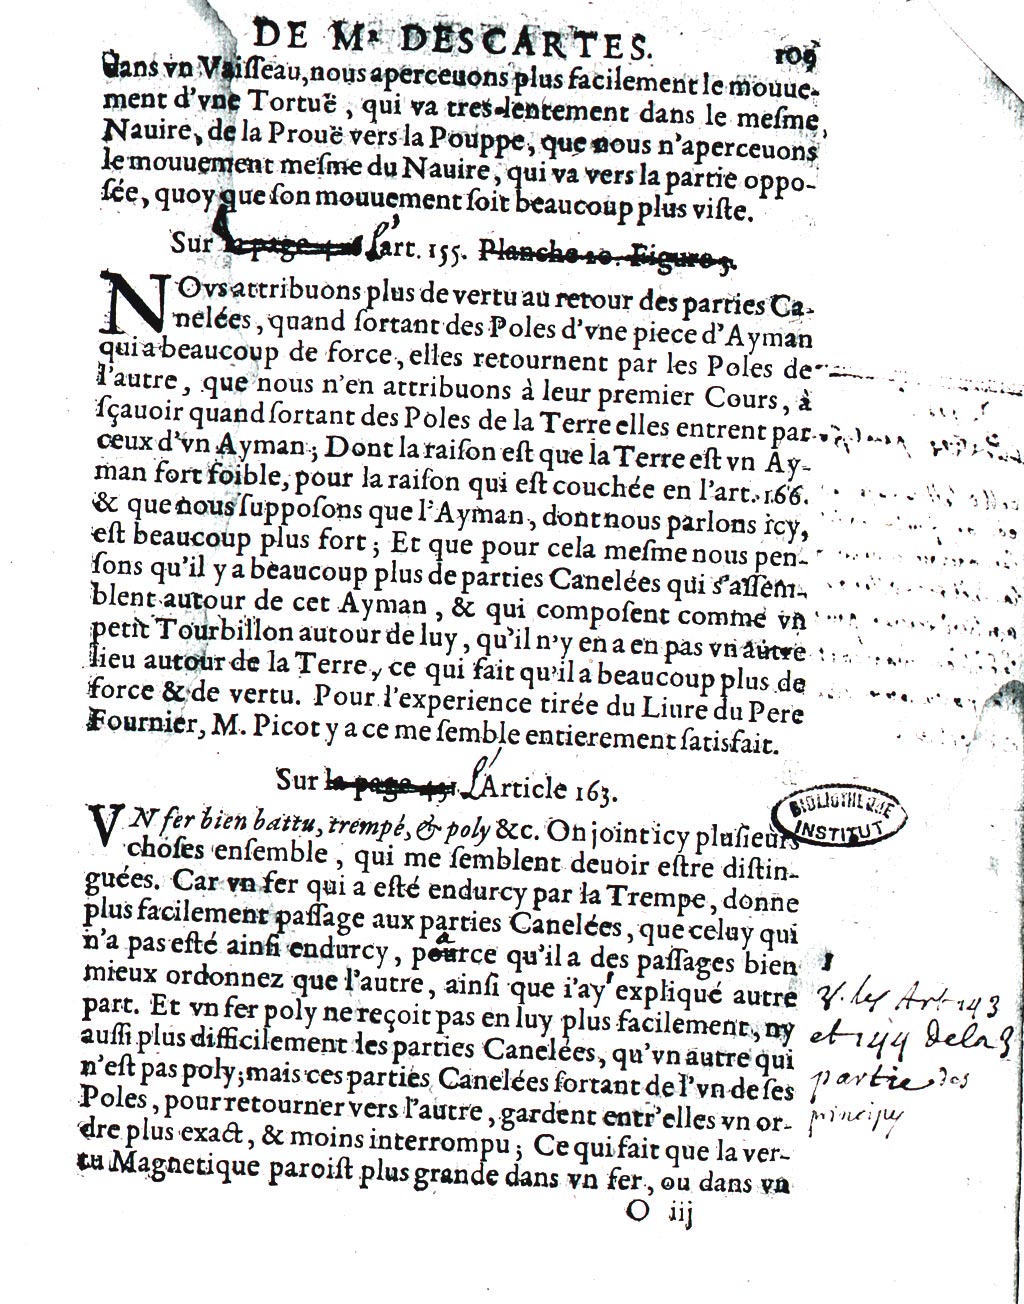 DE Mʳ DESCARTES. 109
dans vn Vaiſſeau, nous aperceuons plus facilement le mouue-
ment d'vne Tortuë, qui va tres-lentement dans le meſme,
Nauire, de la Prouë vers la Pouppe, que nous n'aperceuons
le mouuement meſme du Nauire, qui va vers la partie oppo-
ſée, quoy que ſon mouuement ſoit beaucoup plus viſte.
Sur la page l'art. 155. Planche 20. Figure 5.
NOvs attribuons plus de vertu au retour des parties Ca-
nelées, quand ſortant des Poles d'vne piece d'Ayman
qui a beaucoup de force, elles retournent par les Poles de
l'autre, que nous n'en attribuons à leur premier Cours, à
ſçauoir quand ſortant des Poles de la Terre elles entrent par
ceux d'vn Ayman; Dont la raiſon eſt que la Terre eſt vn Ay-
man fort foible, pour la raiſon qui eſt couchée en l'art. 166.
& que nous ſuppoſons que l'Ayman, dont nous parlons icy,
eſt beaucoup plus fort; Et que pour cela meſme nous pen-
ſons qu'il y a beaucoup plus de parties Canelées qui s'aſſem-
blent autour de cet Ayman, & qui compoſent comme vn
petit Tourbillon autour de luy, qu'il n'y en a en pas vn autre
lieu autour de la Terre, ce qui fait qu'il a beaucoup plus de
force & de vertu. Pour l'experience tirée du Liure du Pere
Fournier, M. Picot y a ce me ſemble entierement ſatisfait.
Sur la page 431 l'Article 163.
BIBLIOTHEQUE
INSTITUT
VN fer bien battu, trempé, & poly &c. On joint icy pluſieurs
choſes enſemble, qui me ſemblent deuoir eſtre diſtin-
guées. Car vn fer qui a eſté endurcy par la Trempe, donne
plus facilement paſſage aux parties Canelées, que celuy qui
n'a pas eſté ainſi endurcy, parce qu'il a des paſſages bien
mieux ordonnez que l'autre, ainſi que i'ay expliqué autre
part. Et vn fer poly ne reçoit pas en luy plus facilement, ny
auſſi plus difficilement les parties Canelées, qu'vn autre qui
n'eſt pas poly; mais ces parties Canelées ſortant de l'vn de ſes
Poles, pour retourner vers l'autre, gardent entr'elles vn or-
dre plus exact, & moins interrompu; Ce qui fait que la ver-
tu Magnetique paroiſt plus grande dans vn fer, ou dans vn
O iij
1
v. les Art. 143
et 144 de la 3
partie des
principes